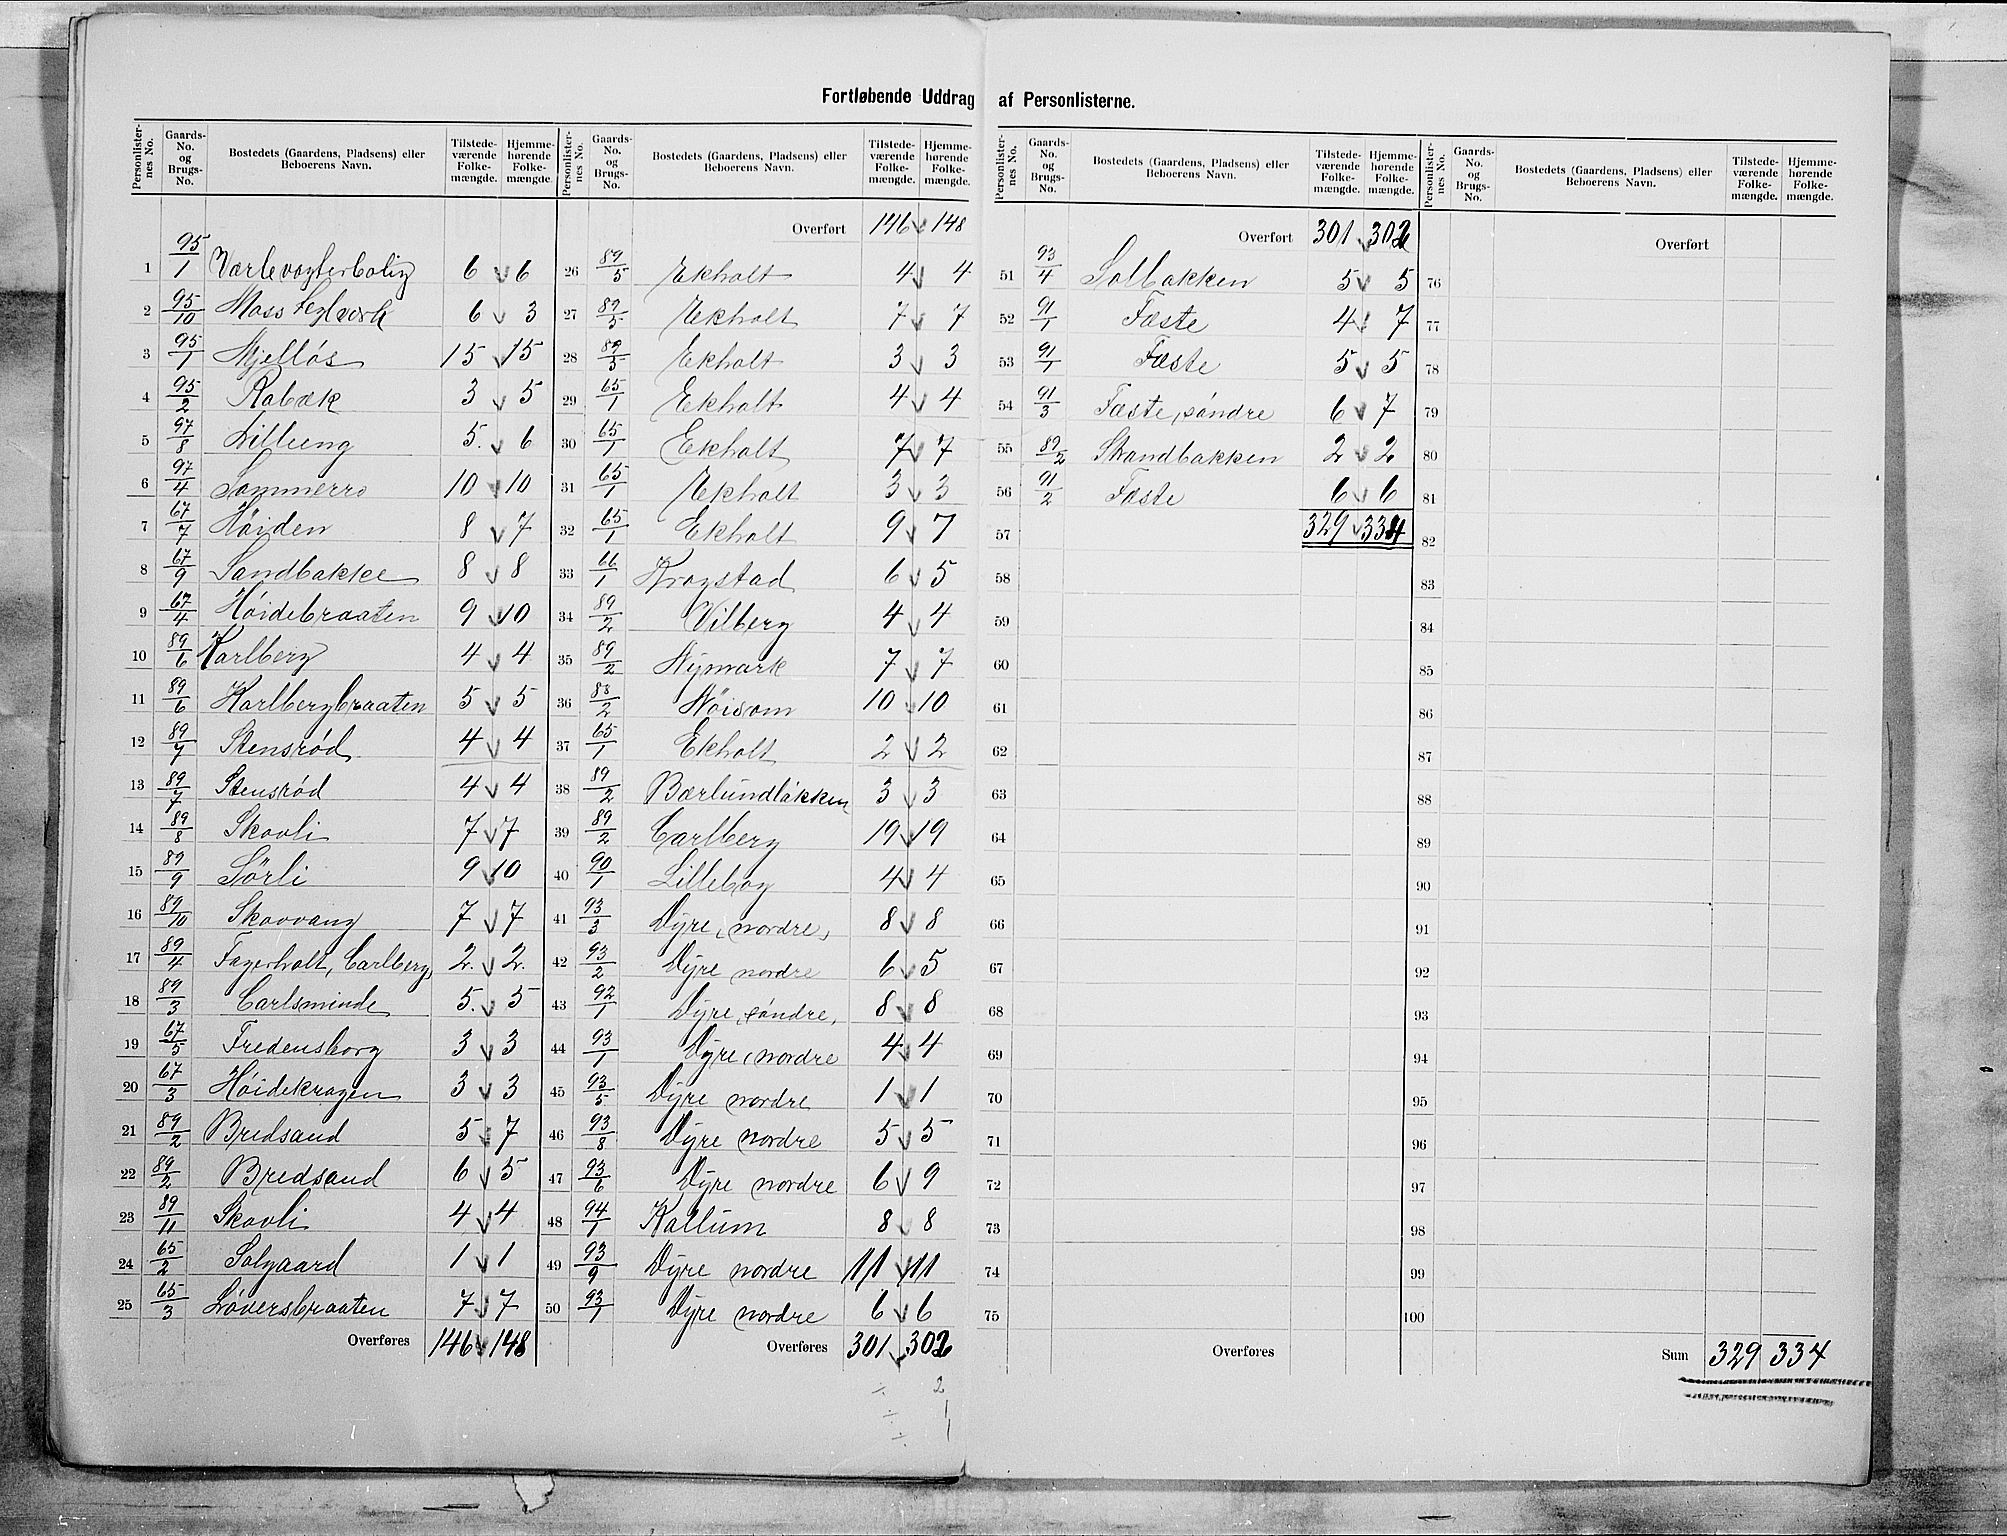 Fortløbende Uddrag af Personlisterne.
Personlister-nes No. | Gaards-No. og Brugs-No. | Bostedets (Gaardens, Pladsens) eller Beboerens Navn. | Tilstede-værende Folke-mængde. | Hjemme-hørende Folke-mængde.
1 95/1 Værlevogterbolig 6 6
2 95/10 Moss Teglværk 6 3
3 95/1 Mjellös 15 15
4 95/2 Rabæk 3 5
5 97/8 Lilleeng 5. 6
6 97/4 Sommerro 10 10
7 67/7 Höiden 8 7
8 67/9 Sandbakke 8 8
9 67/4 Höidebraaten 9 10
10 89/6 Karlberg 4 4
11 89/6 Karlbergbraaten 5 5
12 89/7 Stensrød 4 4
13 89/7 Stensrød 4 4
14 89/8 Skovli 7 7
15 89/9 Sörli 9 10
16 89/10 Skovvang 7 7
17 89/4 Fagerholt, Carlberg 2. 2.
18 89/3 Carlsminde 5. 5
19 67/5 Fredensborg 3 3
20 67/3 Höidekragen 3 3
21 89/2 Bredsand 5 7
22 89/2 Bredsand 6 5
23 89/11 Skovli 4 4
24 65/2 Solgaard 1 1
25 65/3 Löversbraaten 7 7
Overføres 146 148
Personlister-nes No. | Gaards-No. og Brugs-No. | Bostedets (Gaardens, Pladsens) eller Beboerens Navn. | Tilstede-værende Folke-mængde. | Hjemme-hørende Folke-mængde.
Overført 146 148
26 89/5 Ekholt 4 4
27 89/5 Ekholt 7 7
28 89/5 Ekholt 3 3
29 65/1 Ekholt 4 4
30 65/1 Ekholt 7 7
31 65/1 Ekholt 3 3
32 65/1 Ekholt 9 7
33 66/1 Krogstad 6 5
34 89/2 Vilberg 4 4
35 89/2 Nymark 7 7
36 88/2 Nöisom 10 10
37 65/1 Ekholt 2 2
38 89/2 Bærlundlökken 3 3
39 89/2 Carlberg 19 19
40 90/1 Lillebog 4 4
41 93/3 Dyre, nordre, 8 8
42 93/2 Dyre nordre 6 5
43 92/1 Dyre, söndre, 8 8
44 93/1 Dyre, nordre 4 4
45 93/5 Dyre nordre 1 1
46 93/8 Dyre nordre 5 5
47 93/6 Dyre nordre 6 9
48 94/1 Kallum 8 8
49 93/9 Dyre nordre 11 11
50 93/1 Dyre nordre 6 6
Overføres 301 302
÷ 2
÷ 1
÷ 1
Personlister-nes No. | Gaards-No. og Brugs-No. | Bostedets (Gaardens, Pladsens) eller Beboerens Navn. | Tilstede-værende Folke-mængde. | Hjemme-hørende Folke-mængde.
Overført 301 302
51 93/4 Solbakken 5 5
52 91/1 Fæste 4 7
53 91/1 Fæste 5 5
54 91/3 Fæste, söndre 6 7
55 89/2 Strandbakken 2 2
56 91/2 Fæste 6 6
57 329 334
58
59
60
61
62
63
64
65
66
67
68
69
70
71
72
73
74
75
Overføres
Personlister-nes No. | Gaards-No. og Brugs-No. | Bostedets (Gaardens, Pladsens) eller Beboerens Navn. | Tilstede-værende Folke-mængde. | Hjemme-hørende Folke-mængde.
Overført
76
77
78
79
80
81
82
83
84
85
86
87
88
89
90
91
92
93
94
95
96
97
98
99
100
Sum 329 334